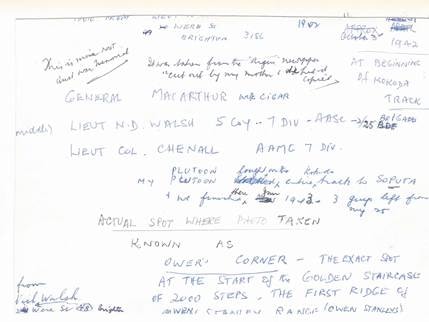 WERE St 1942
BRIGHTON 3186
1942
This is mine not
and war memorial
It was taken from the Argus newspaper
cut out by my mother
copied
AT BEGINNING
OF KOKODA
TRACK
GENERAL MACARTHUR with CIGAR
LIEUT N.D. WALSH 5 Coy - 7 DIV - AASC - 25 BDE
BRIGADE
LIEUT COL. CHENALL AAMC 7 DIV.
PLUTOON fought onto Kokoda
MY PLUTOON entire track to SOPUTA
& we finished there Jan 1943. 3 guys left from
my 25
ACTUAL SPOT WHERE PHOTO TAKEN
KNOWN AS
OWER'S CORNER - THE EXACT SPOT
AT THE START of the GOLDEN STAIRCASE
OF 2000 STEPS. THE FIRST RIDGE OF
OWEN STANLEY RANGE (OWEN STANLEYS)
from
Walsh
Were St Brighton